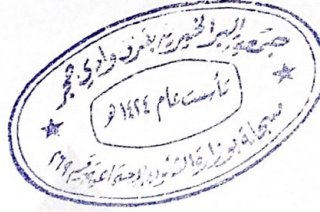 جمعية البر الخيرية بغرف وادي حجر
تأسست عام ١٤٢٤ هـ
مسجلة بوزارة الشئون الاجتماعية برقم ٢٦٩